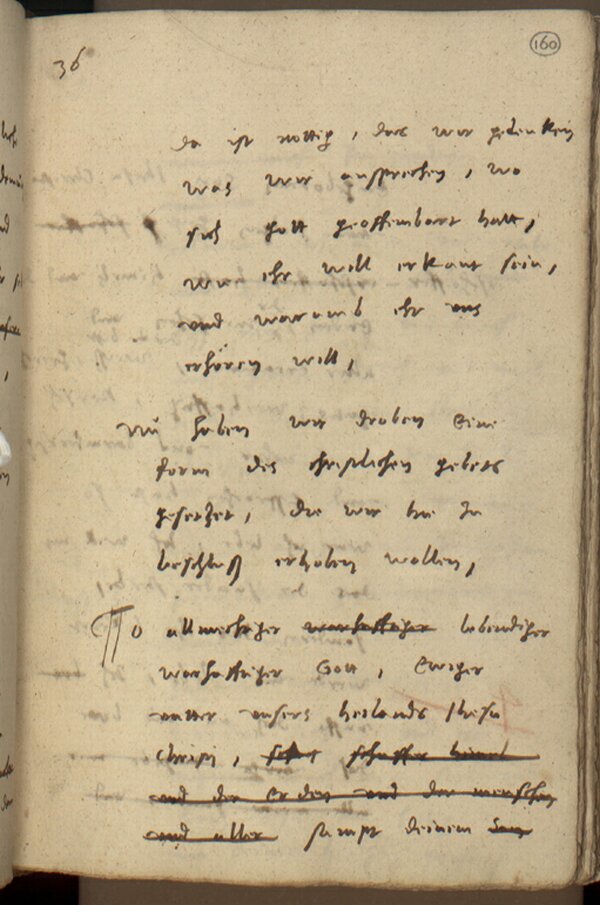 160
36
da ist nottig, das wir gedenken
was wir ansprechen, wo
sich gott geoffenbart hatt,
wie ehr will erkant sein,
und warumb ehr uns
erhören will,
Nu haben wir droben eine
form des christlichen gebets
gesetzet, die wir hie zu
beschluß erholen wollen,
O allmechtiger warhafftiger lebendiger
warhafftiger Gott, Ewiger
vatter unsers heilands Jhesu
Christi, schaffer himel
und der Erden und der menschen
und aller sampt deinem